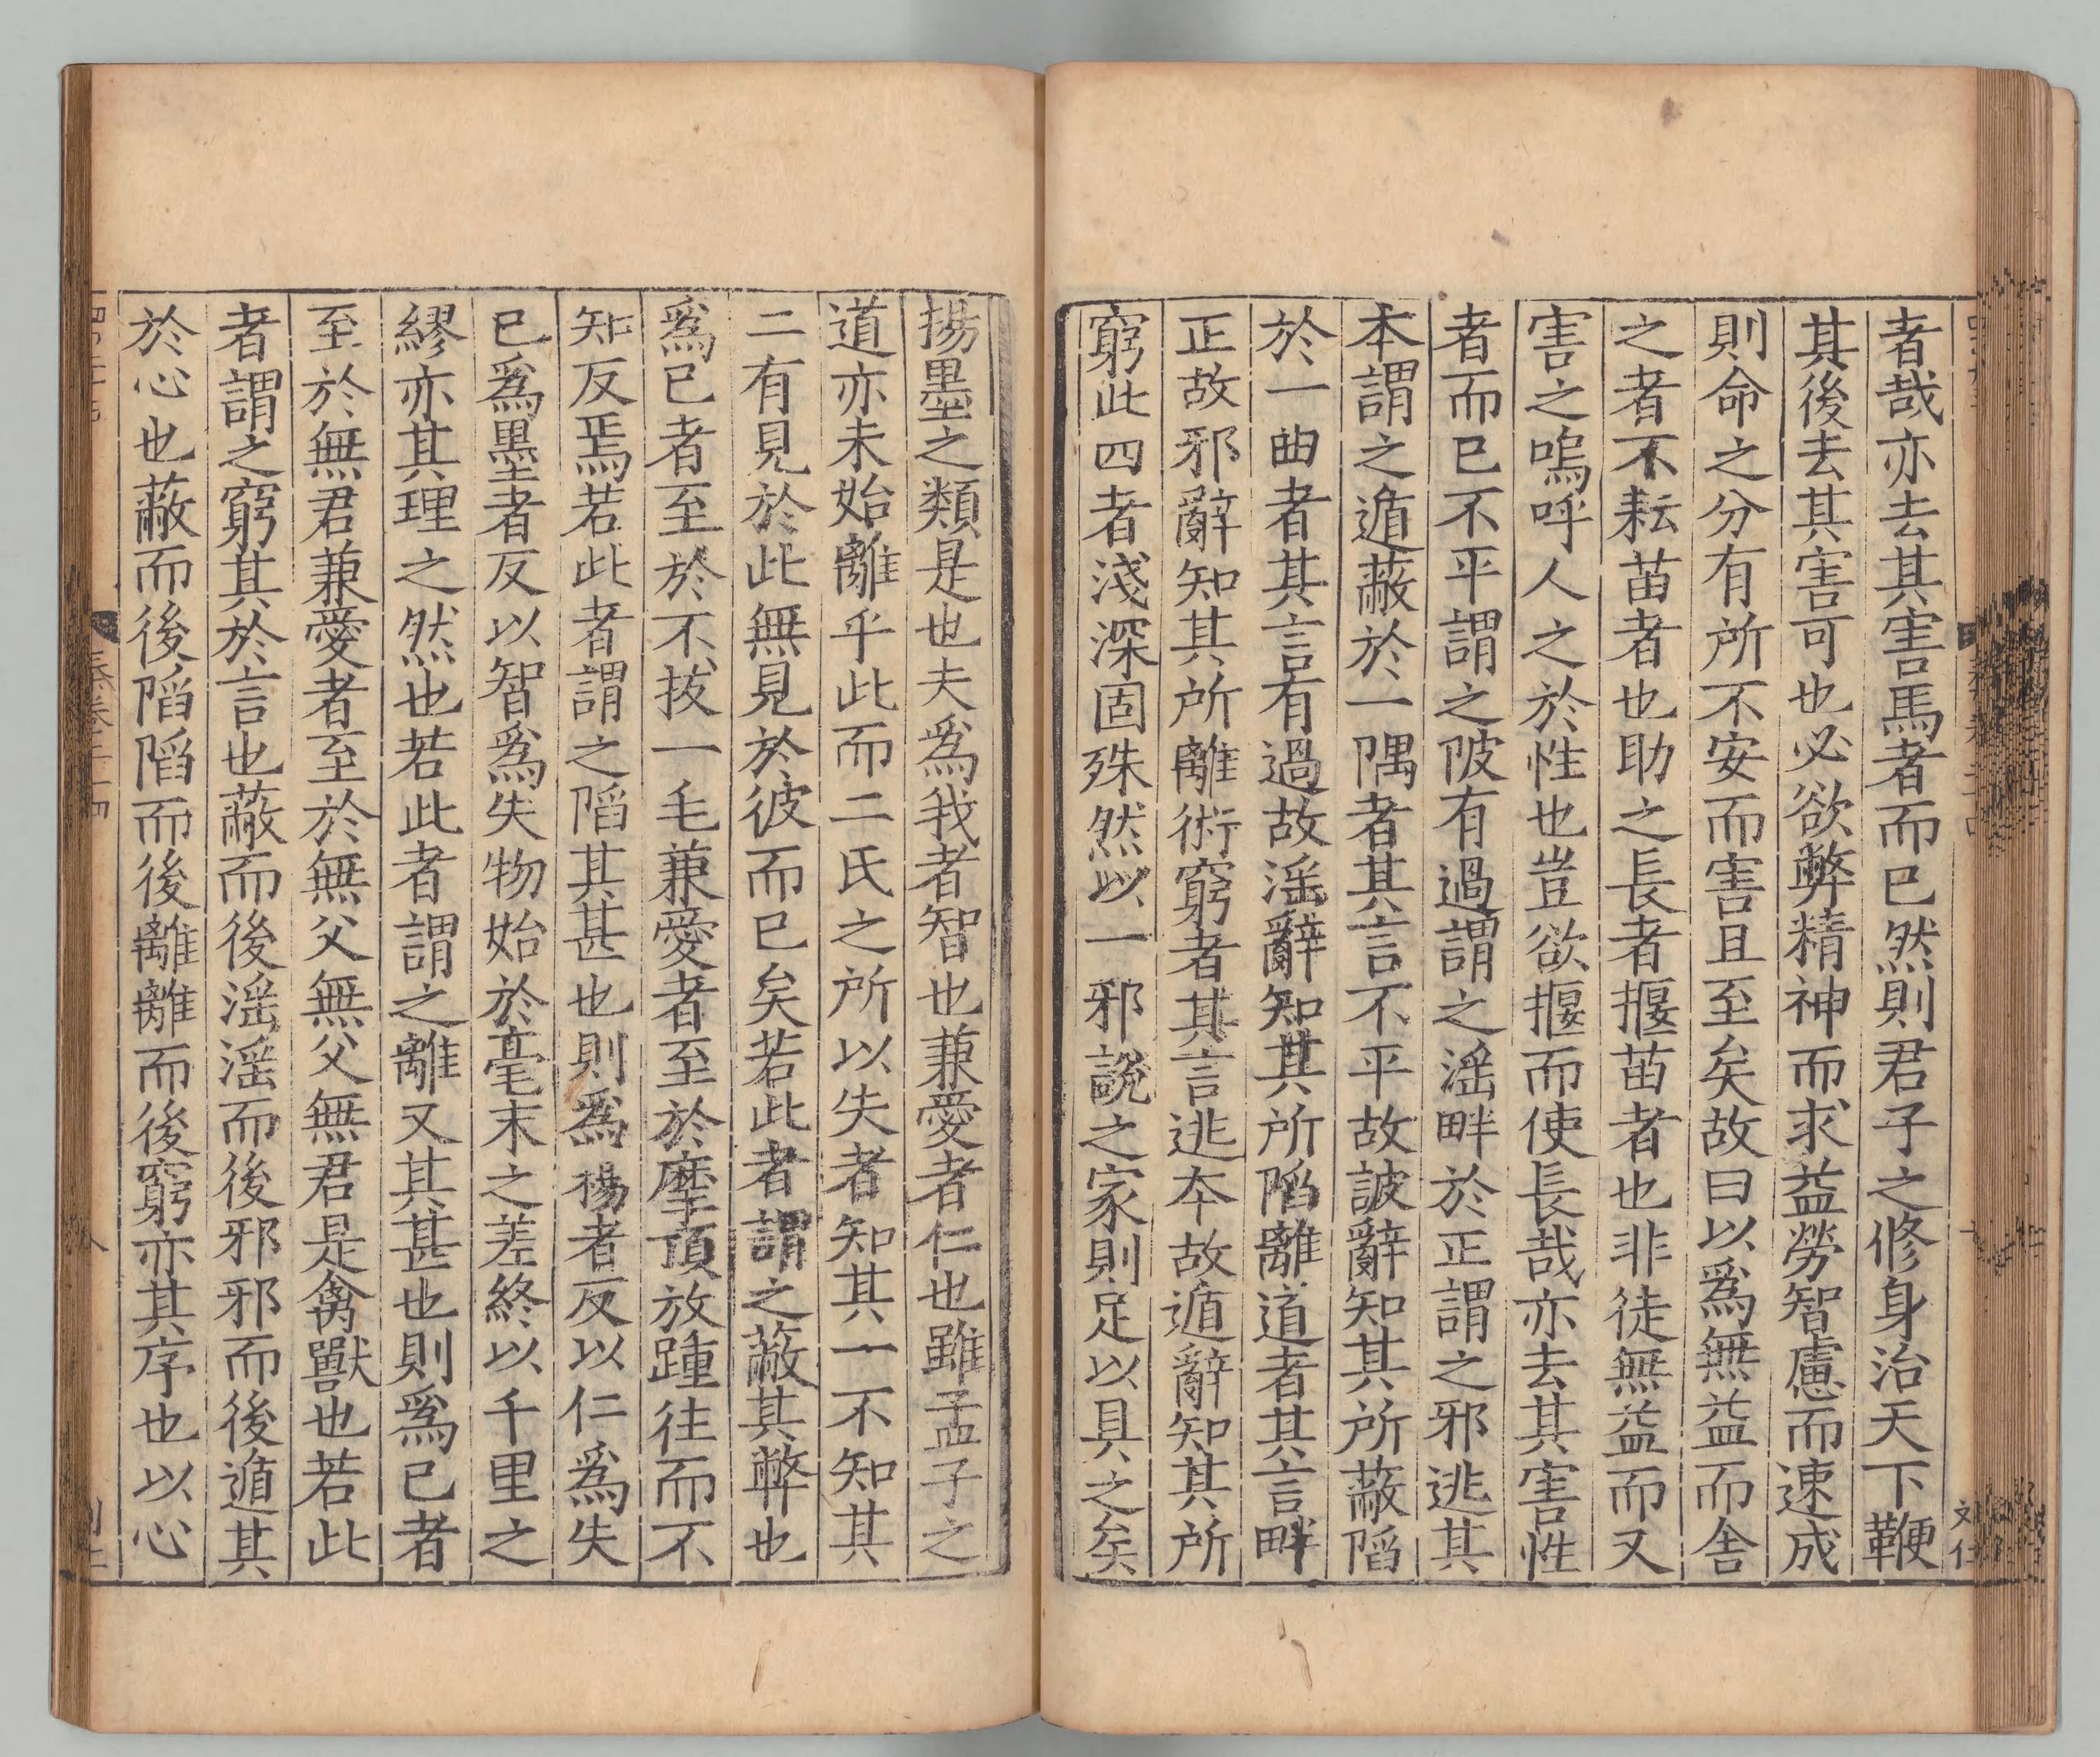 者哉亦去其害馬者而已然則君子之修身治天下鞭
其後去其害可也必欲弊精神而求益勞智慮而速成
則命之分有所不安而害且至矣故曰以爲無益而舍
之者不耘苗者也助之長者揠苗者也非徒無益而又
害之嗚呼人之於性也豈欲揠而使長哉亦去其害性
者而已不平謂之陂有過謂之滛畔於正謂之邪逃其
本謂之遁蔽於一隅者其言不平故詖辭知其所蔽陷
於一曲者其言有過故滛辭知其所陷離道者其言畔
正故邪辭知其所離術窮者其言逃本故遁辭知其所
窮此四者淺深固殊然以一邪說之家則足以具之矣
文仁
揚墨之類是也夫爲我者智也兼愛者仁也雖孟子之
道亦未始離乎此而二氏之所以失者知其一不知其
二有見於此無見於彼而已矣若此者謂之蔽其弊也
爲已者至於不拔一毛兼愛者至於摩頂放踵往而不
知反焉若此者謂之陷其甚也則爲楊者反以仁爲失
已爲墨者反以智爲失物始於毫末之差終以千里之
繆亦其理之然也若此者謂之離又其甚也則爲已者
至於無君兼愛者至於無父無父無君是禽獸也若此
者謂之窮其於言也蔽而後滛滛而後邪邪而後遁其
於心也蔽而後陷陷而後離離而後窮亦其序也以心